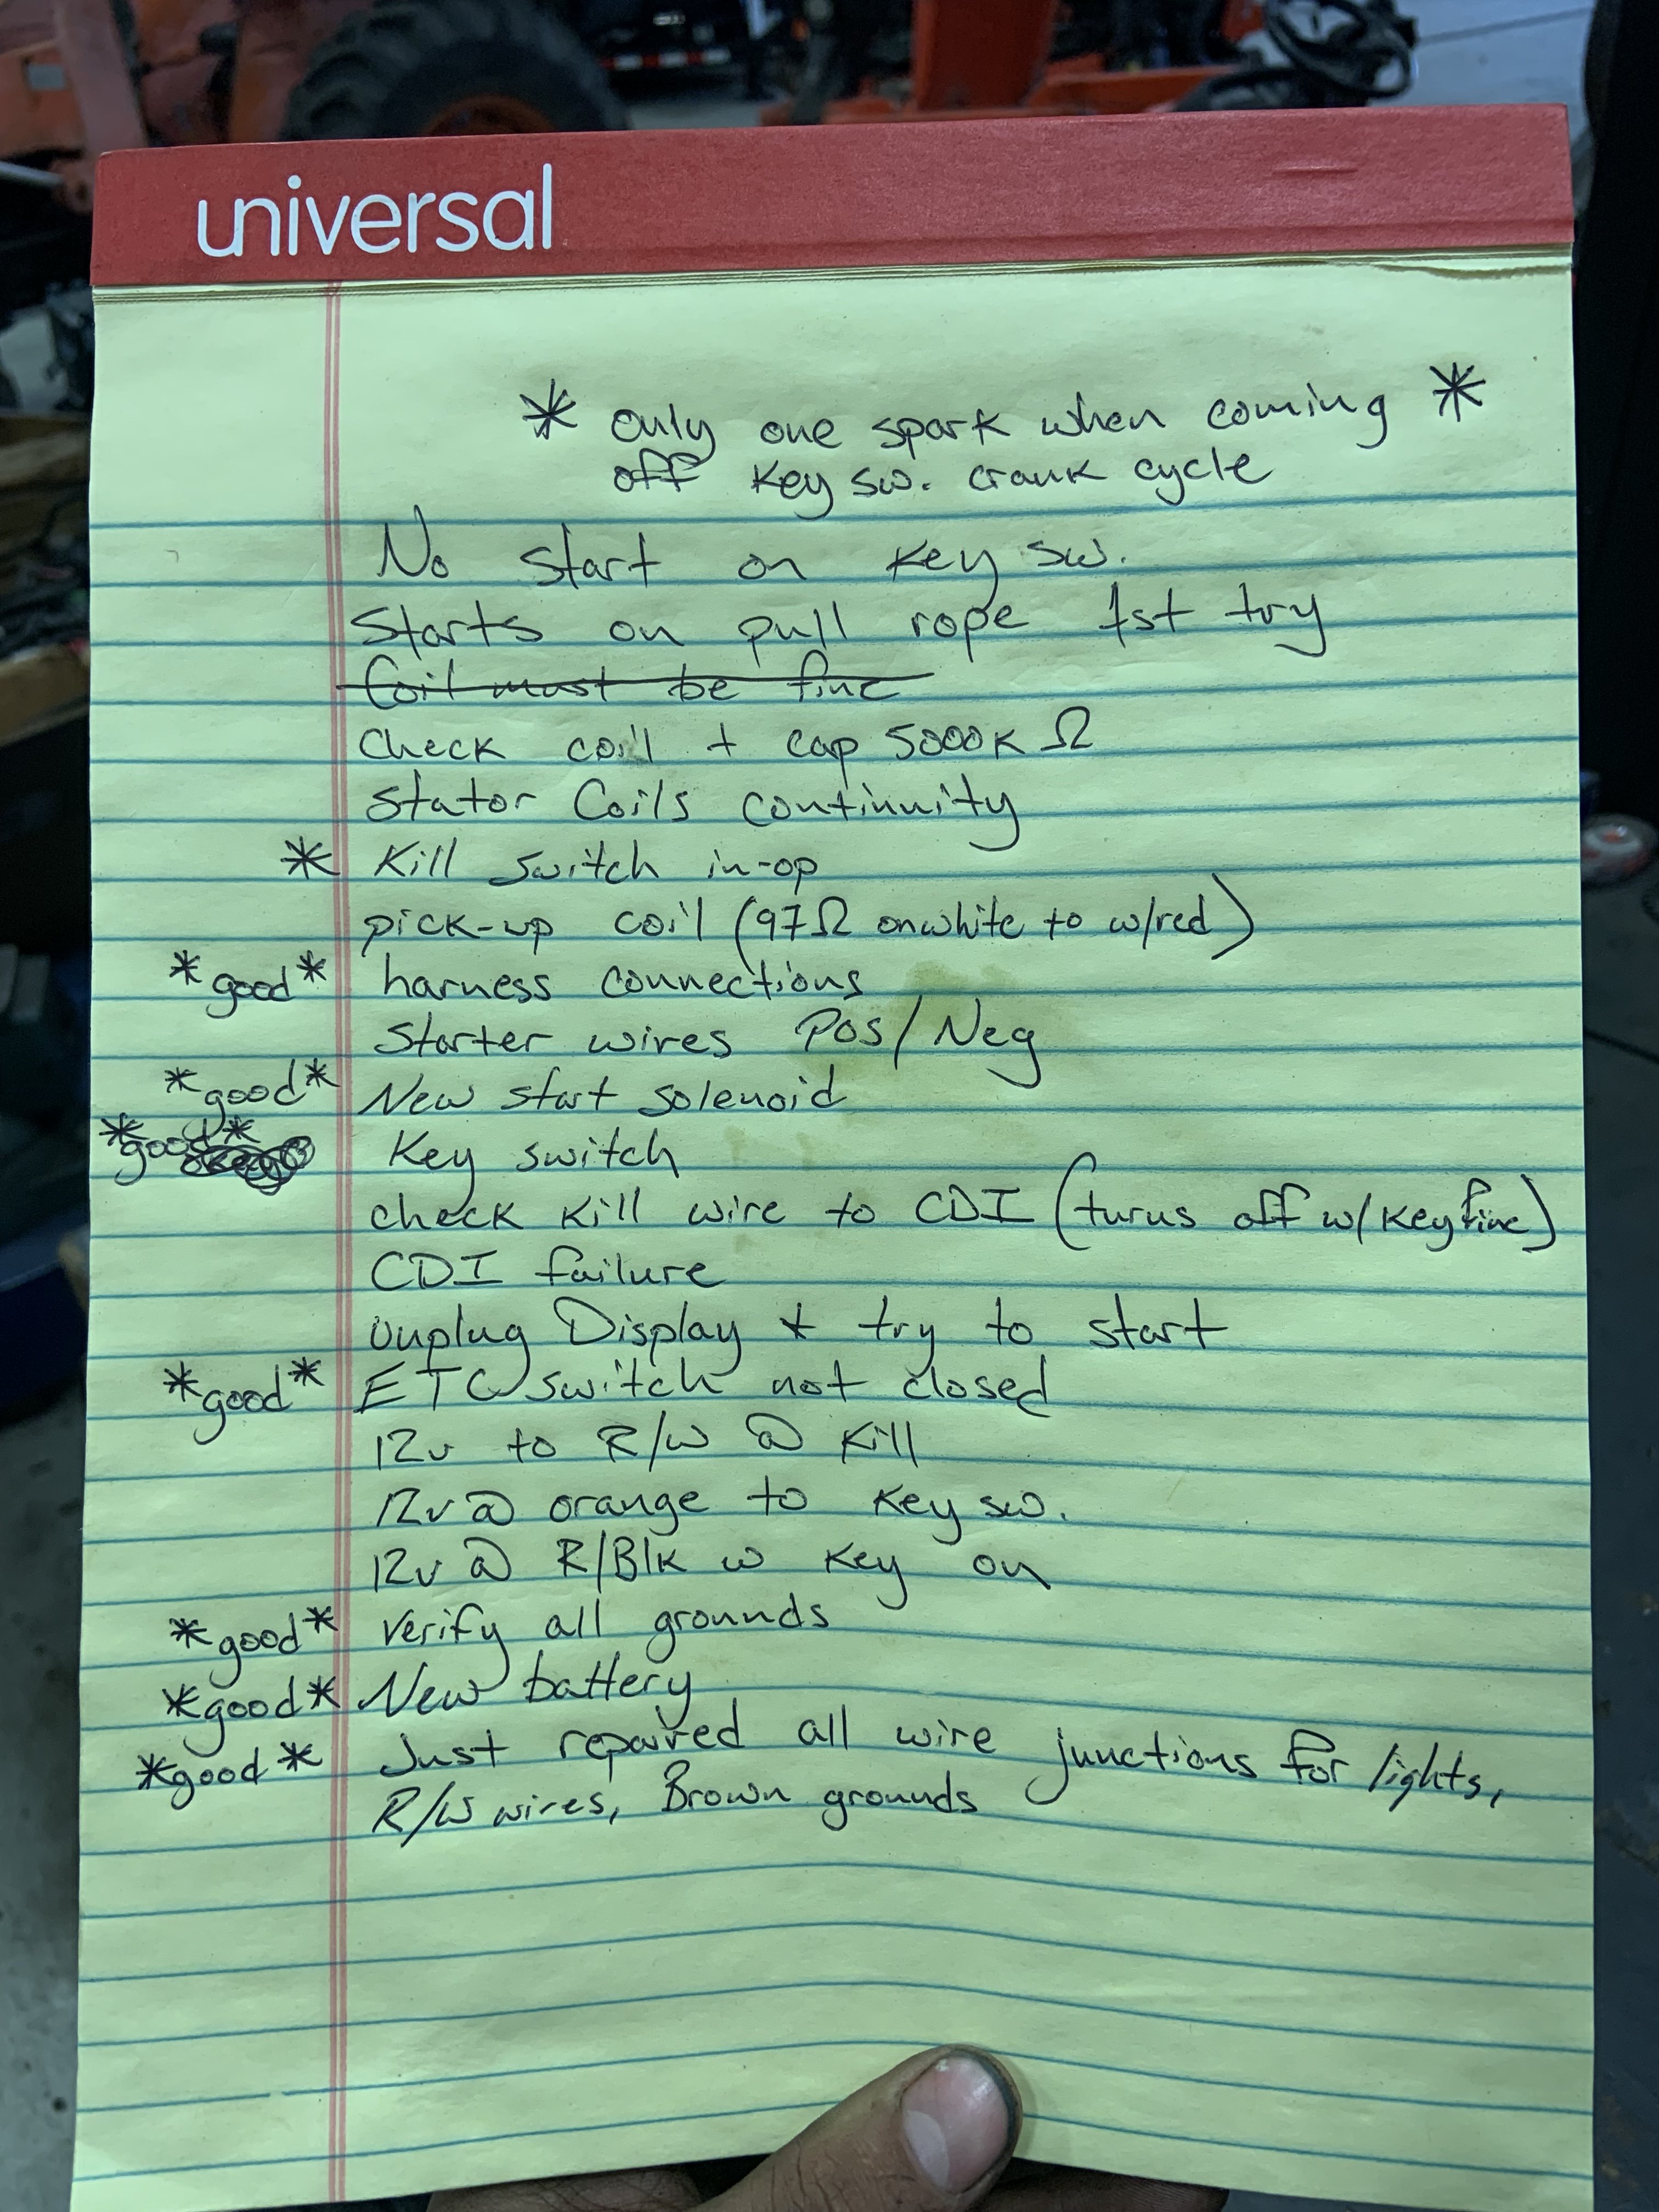 universal
* only one spark when coming *
off key sw. crank cycle
No start on key sw.
Starts on pull rope 1st try
Coil must be fine
Check coil + cap 5000K Ω
Stator Coils continuity
* Kill switch in-op
pick-up coil (97Ω on white to w/red)
*good* harness connections
Starter wires Pos/Neg
*good* New start solenoid
*good* Key switch
check kill wire to CDI (turns off w/ key fine)
CDI failure
Unplug Display + try to start
*good* ETC switch not closed
12v to R/W @ Kill
12v @ orange to key sw.
12v @ R/Blk w key on
*good* verify all grounds
*good* New battery
*good* Just repaired all wire junctions for lights,
R/W wires, Brown grounds